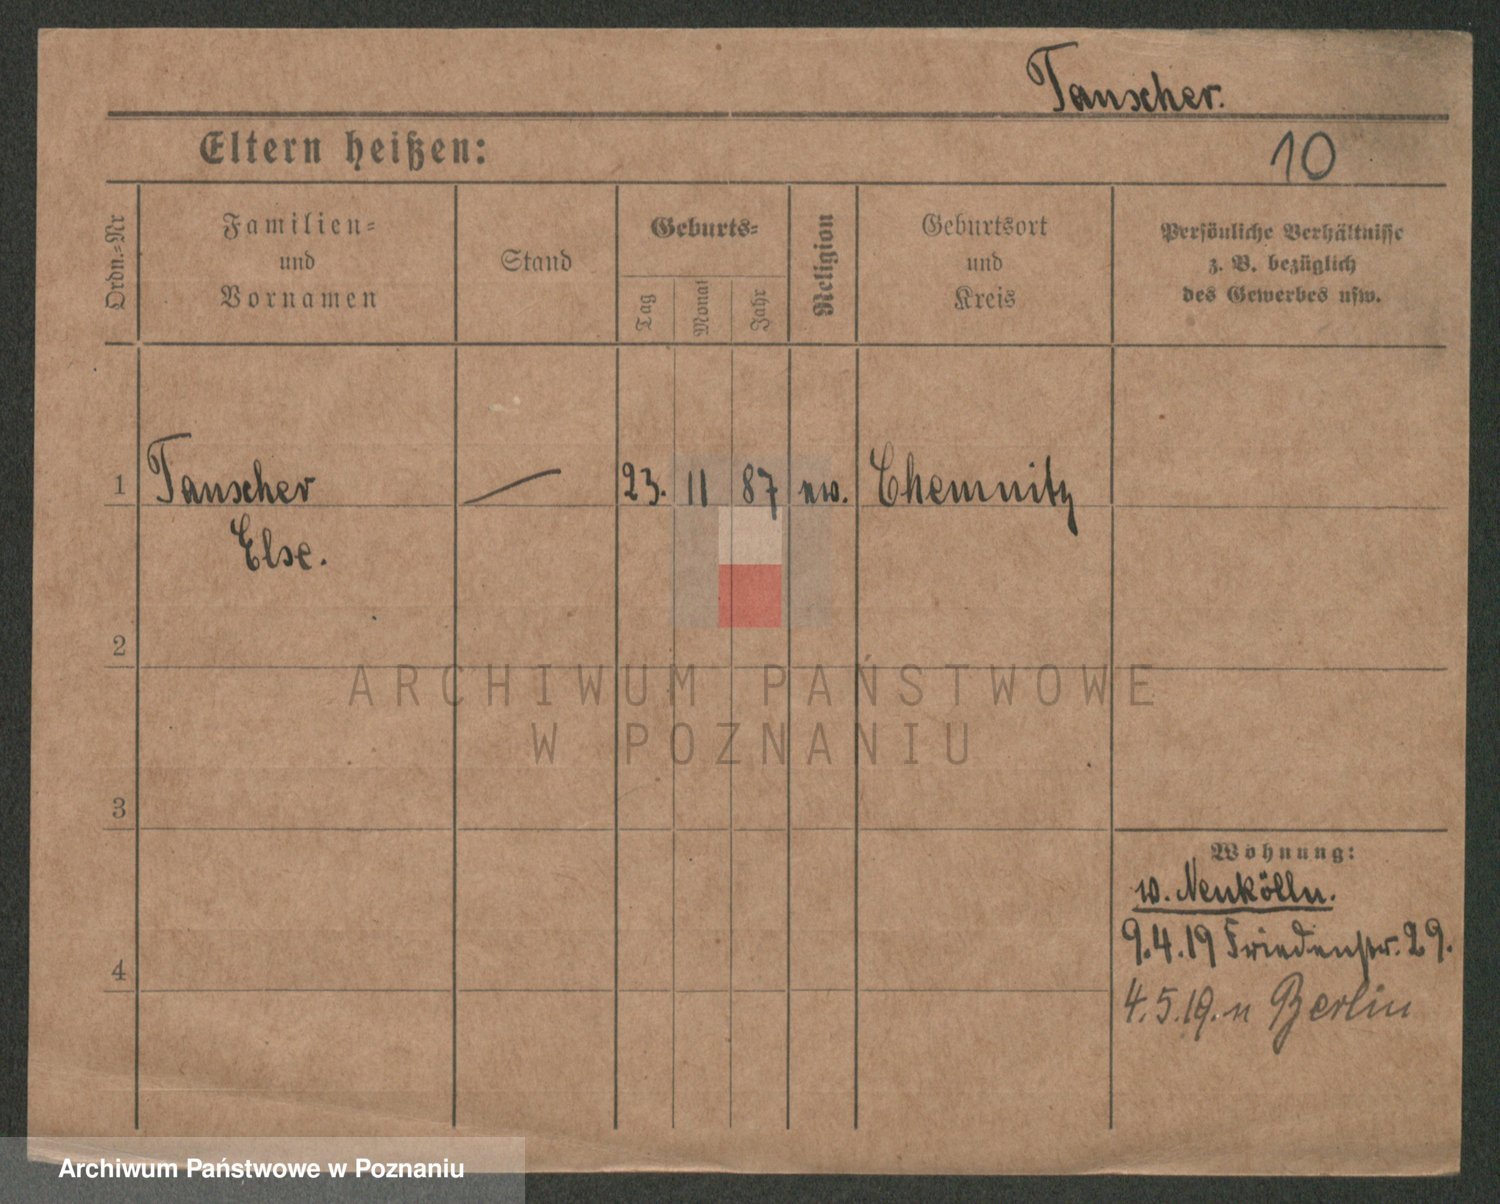 Tauscher.
Eltern heißen:
10
Ordn.=Nr
Familien=
und
Vornamen
Stand
Geburts=
Tag
Monat
Jahr
Religion
Geburtsort
und
Kreis
Persönliche Verhältnisse
z. B. bezüglich
des Gewerbes usw.
1 Tauscher — 23. 11 87 Chemnitz
Else.
2
3
4
Wohnung:
w. Neukölln.
9.4.19 Friedenstr. 29.
4.5.19. n Berlin
ARCHIWUM PAŃSTWOWE
W POZNANIU
Archiwum Państwowe w Poznaniu